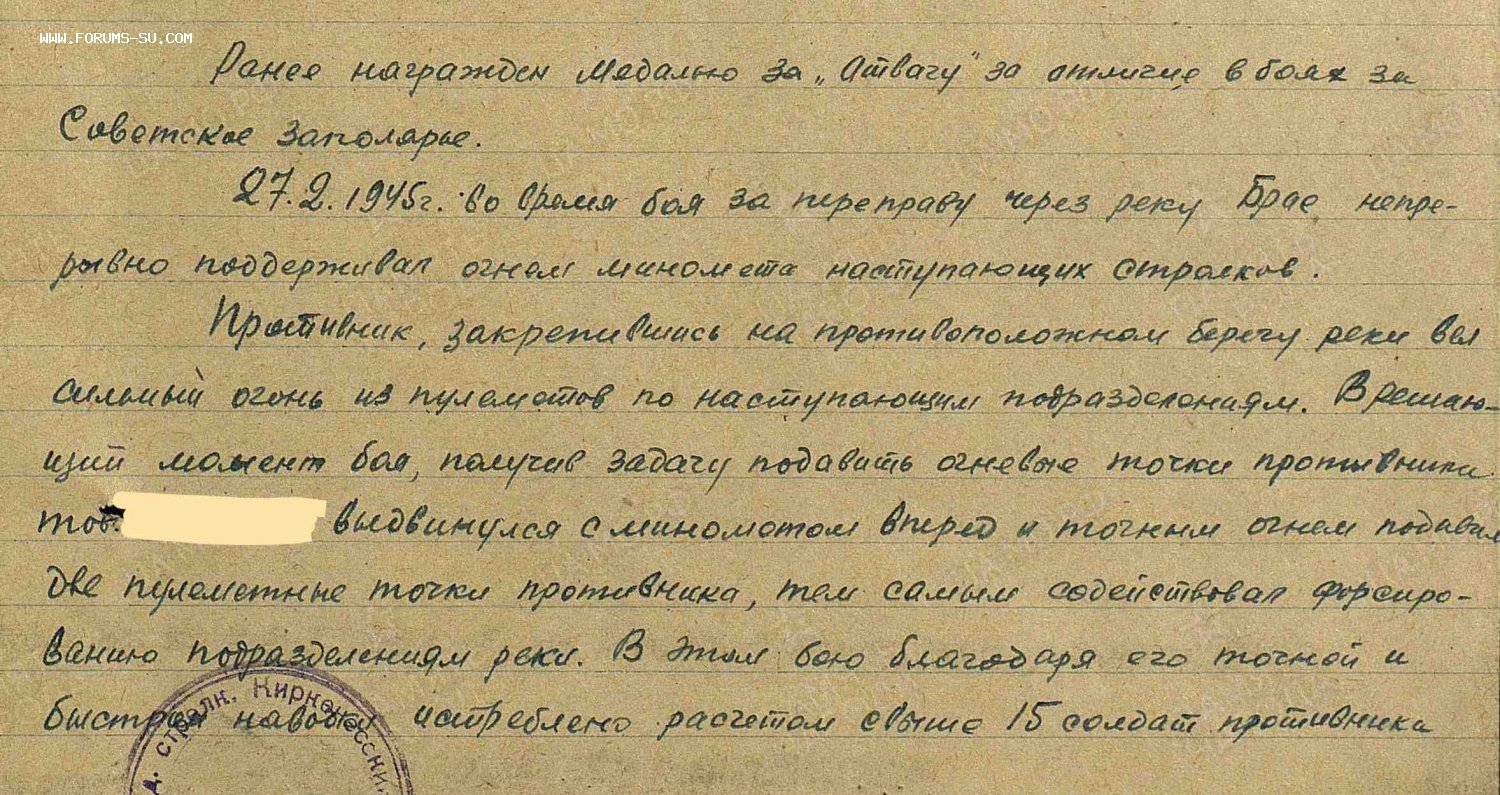 WWW.FORUMS-SU.COM
Ранее награжден Медалью за „Отвагу" за отличие в боях за
Советское заполярье.
27.2.1945г. во время боя за переправу через реку Брае непре-
рывно поддерживал огнем миномета наступающих стрелков.
Противник, закрепившись на противоположном берегу реки вел
сильный огонь из пулеметов по наступающим подразделениям. В решаю-
щий момент боя, получив задачу подавить огневые точки противника
тов. выдвинулся с минометом вперед и точным огнем подавил
две пулеметные точки противника, тем самым содействовал форсиро-
ванию подразделениям реки. В этом бою благодаря его точной и
быстрой наводки истреблено расчетом свыше 15 солдат противника
д. стрелк. Киркенесский